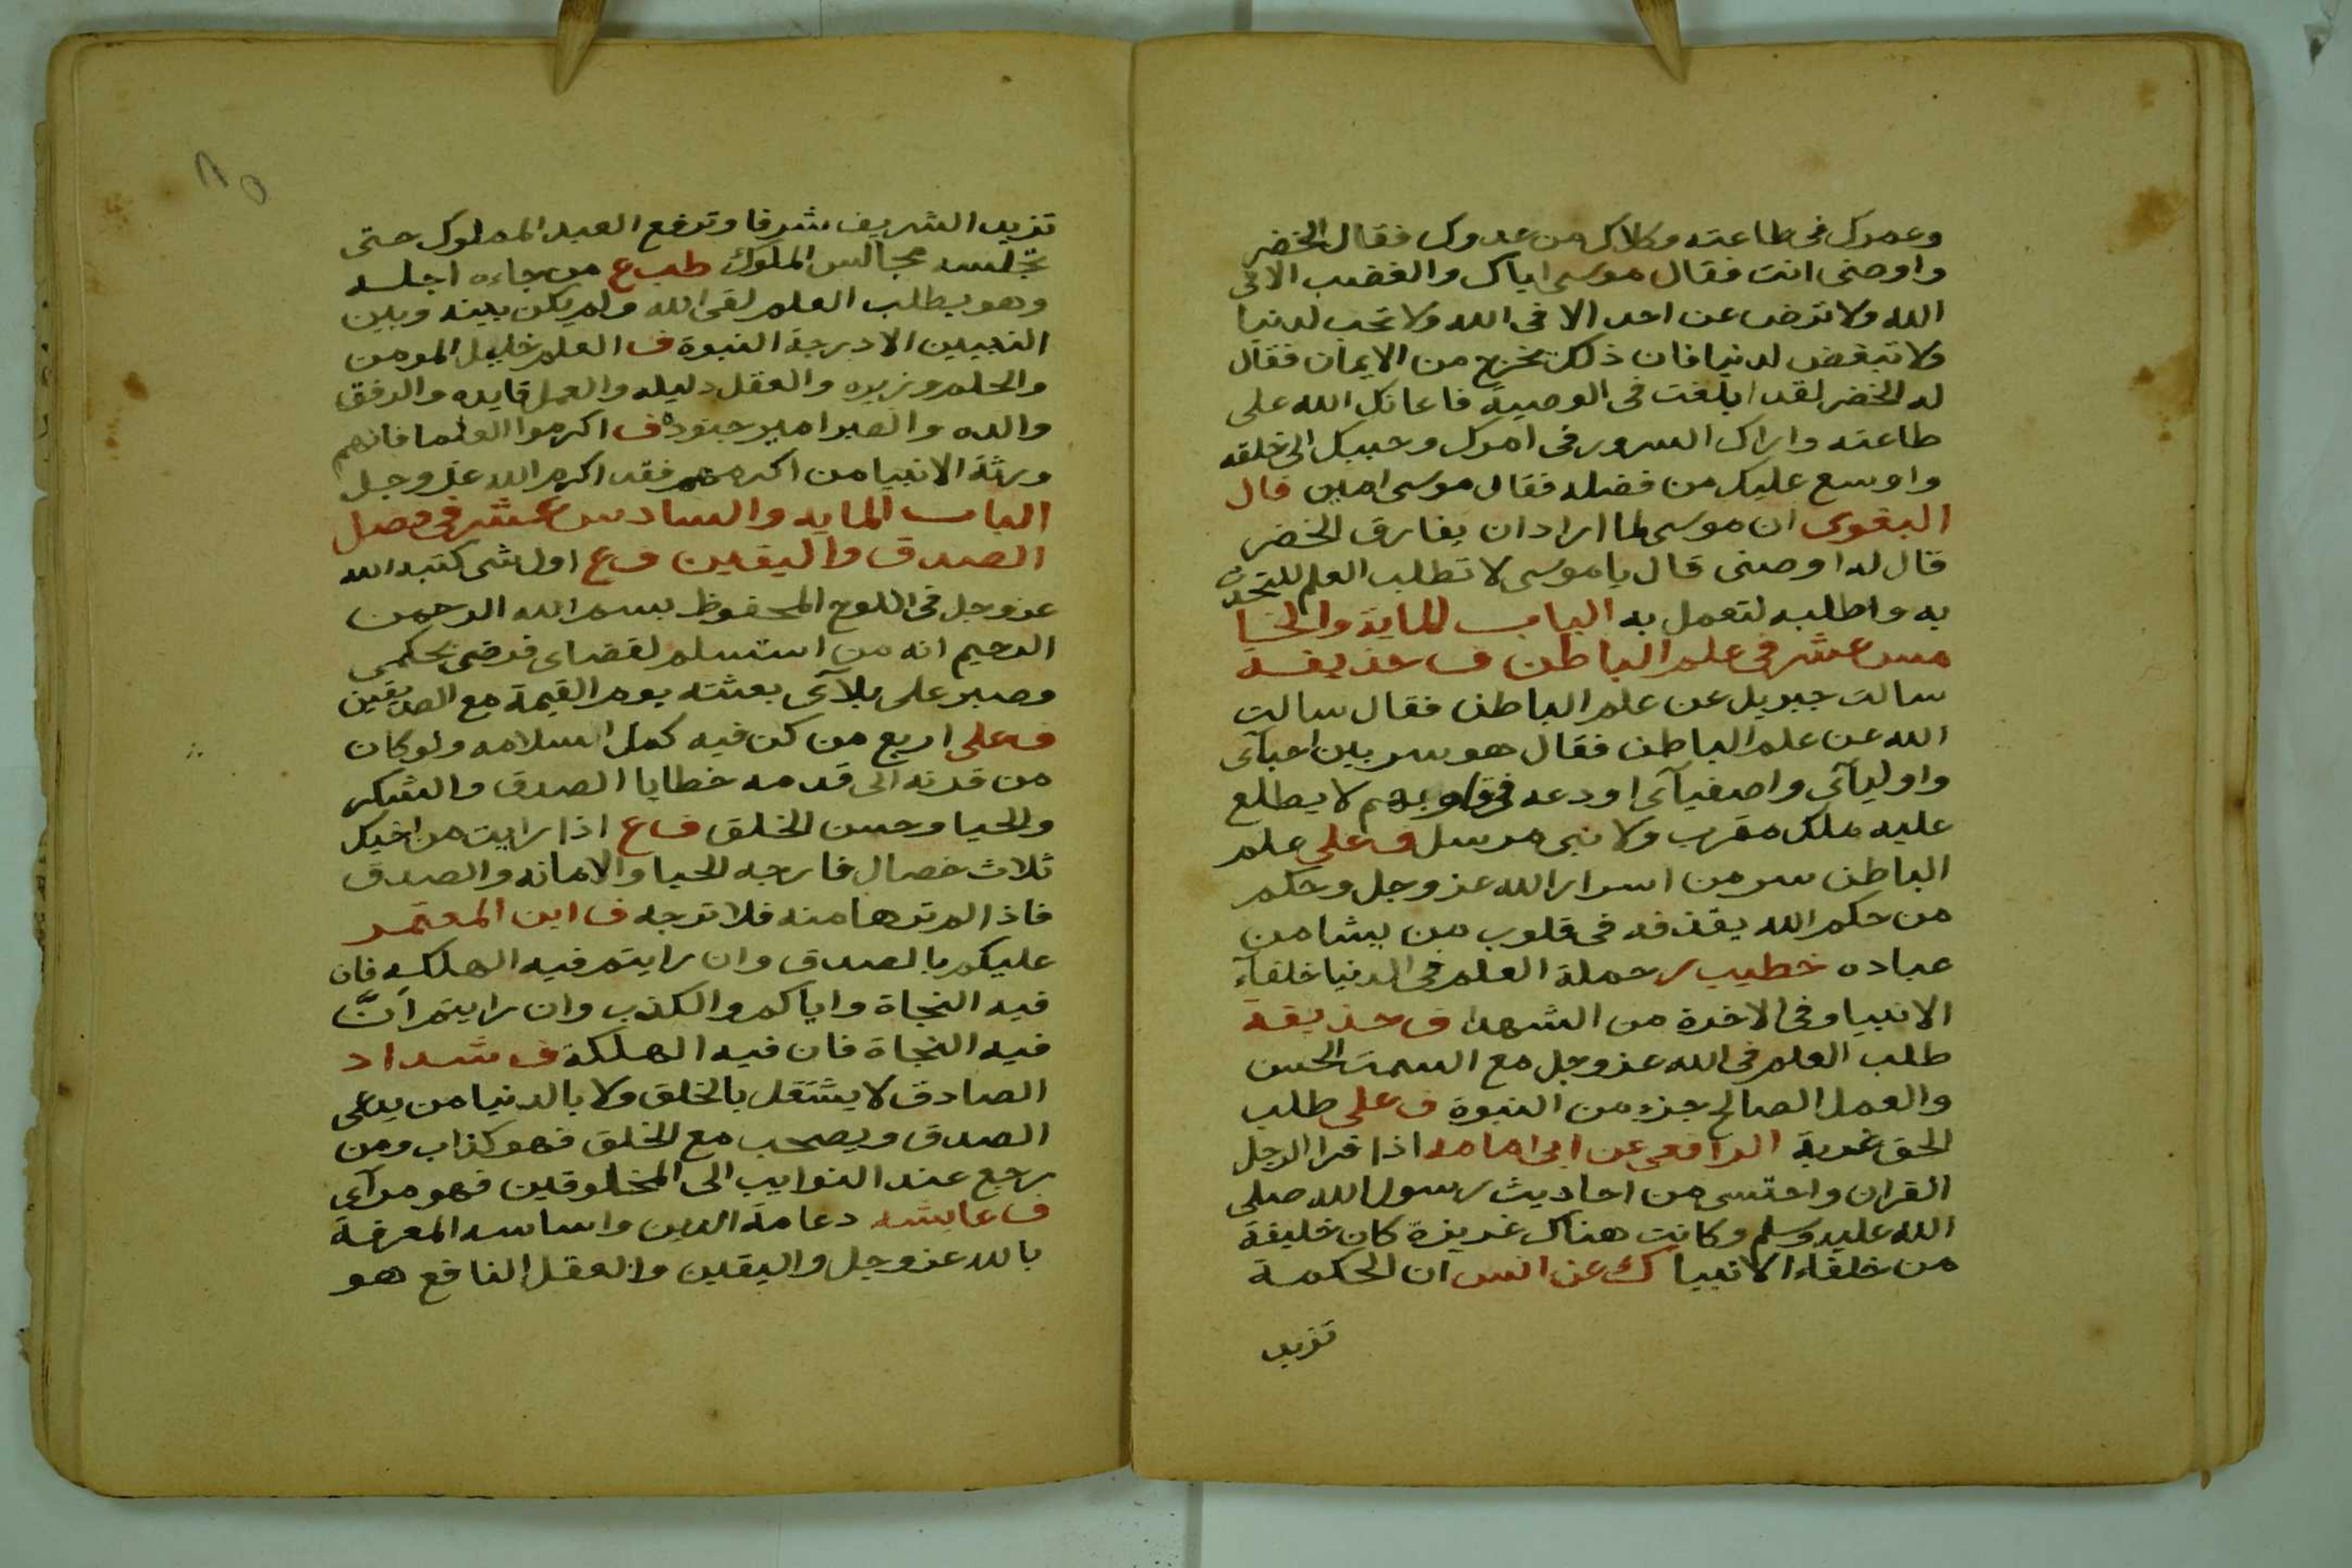 وعمرك فى طاعته وكلاك من عدوك فقال الخضر
واوصنى انت فقال موسى اياك والغضب الا فى
الله ولا ترض عن احد الا فى الله ولا تحب لدنيا
ولا تبغض لدنيا فان ذلك يخرج من الايمان فقال
له الخضر لقد ابلغت فى الوصية فاعانك الله على
طاعته واراك السرور فى امرك وحببك الى خلقه
واوسع عليك من فضله فقال موسى امين قال
البغوى ان موسى لما اراد ان يفارق الخضر
قال له اوصنى قال يا موسى لا تطلب العلم للتحدث
به واطلبه لتعمل به الباب الماية والخا
مس عشر فى علم الباطن ف حذيفة
سالت جبريل عن علم الباطن فقال سالت
الله عن علم الباطن فقال هو سر بين احبآى
واوليآى واصفيآى اودعه فى قلوبهم لا يطلع
عليه ملك مقرب ولا نبى مرسل ف على علم
الباطن سر من اسرار الله عز وجل وحكم
من حكم الله يقذفه فى قلوب من يشا من
عباده خطيب ر حملة العلم فى الدنيا خلفآء
الانبيا وفى الاخرة من الشهدا ف حذيفة
طلب العلم فى الله عز وجل مع السمت الحسن
والعمل الصالح جزء من النبوة ف على طلب
الحق غربة الرافعى عن ابى امامه اذا قرا الرجل
القران واحتسى من احاديث رسول الله صلى
الله عليه وسلم وكانت هناك غريزة كان خليفة
من خلفاء الانبيا ك عن انس ان الحكمة
تزيد
٨٥
تزيد الشريف شرفا وترفع العبد المملوك حتى
تجلسه مجالس الملوك طب ع من جاءه اجله
وهو يطلب العلم لقى الله ولم يكن بينه وبين
النبيين الا درجة النبوة ف العلم خليل المومن
والحلم وزيره والعقل دليله والعمل قايده والرفق
والده والصبر امير جنوده ف اكرموا العلما فانهم
ورثة الانبيا من اكرمهم فقد اكرم الله عز وجل
الباب المايه والسادس عشر فى فضل
الصدق واليقين ف ع اول شى كتبه الله
عز وجل فى اللوح المحفوظ بسم الله الرحمن
الرحيم انه من استسلم لقضاى فرضى بحكمى
وصبر على بلآى بعثته يوم القيمة مع الصديقين
ف على اربع من كن فيه كمل اسلامه ولو كان
من قرنه الى قدمه خطايا الصدق والشكر
والحيا وحسن الخلق ف ع اذا رايت من اخيك
ثلاث خصال فارجه الحيا والامانه والصدق
فاذا لم ترها منه فلا ترجه ف ابن المعتمر
عليكم بالصدق وان رايتم فيه الهلكه فان
فيه النجاة واياكم والكذب وان رايتم انّ
فيه النجاة فان فيه الهلكة ف شداد
الصادق لا يشتغل بالخلق ولا بالدنيا من يدعى
الصدق ويصحب مع الخلق فهو كذاب ومن
رجع عند النوايب الى المخلوقين فهو مرآى
ف عايشه دعامة الدين واساسه المعرفة
بالله عز وجل واليقين والعقل النافع هو